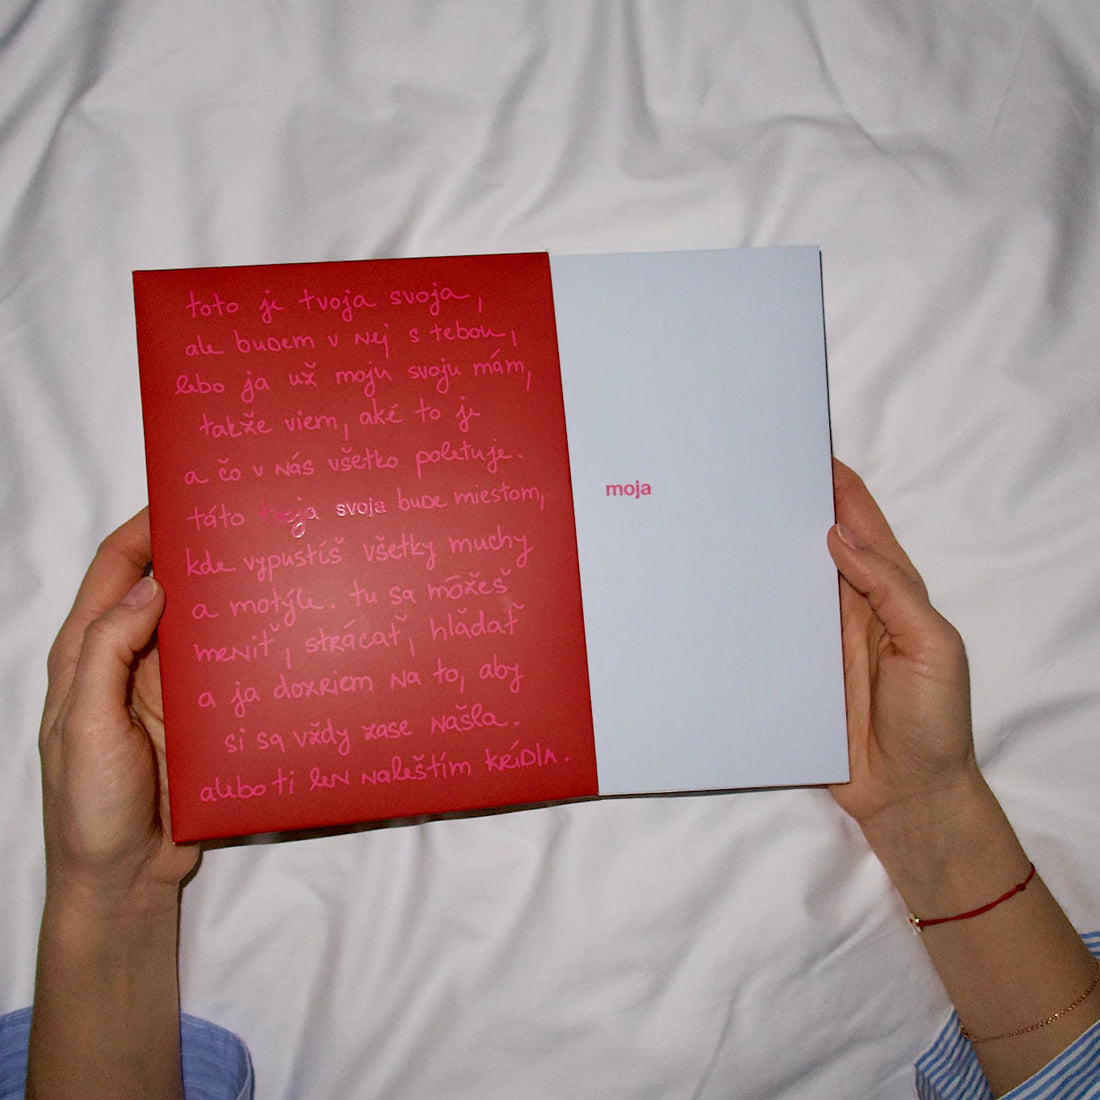 toto je tvoja svoja,
ale budem v nej s tebou,
lebo ja už moju svoju mám,
takže viem, aké to je
a čo v nás všetko poletuje.
táto tvoja svoja bude miestom,
kde vypustíš všetky muchy
a motýle. tu sa môžeš
meniť, strácať, hľadať
a ja dozriem na to, aby
si sa vždy zase našla.
alebo ti len naleštím krídla.
moja